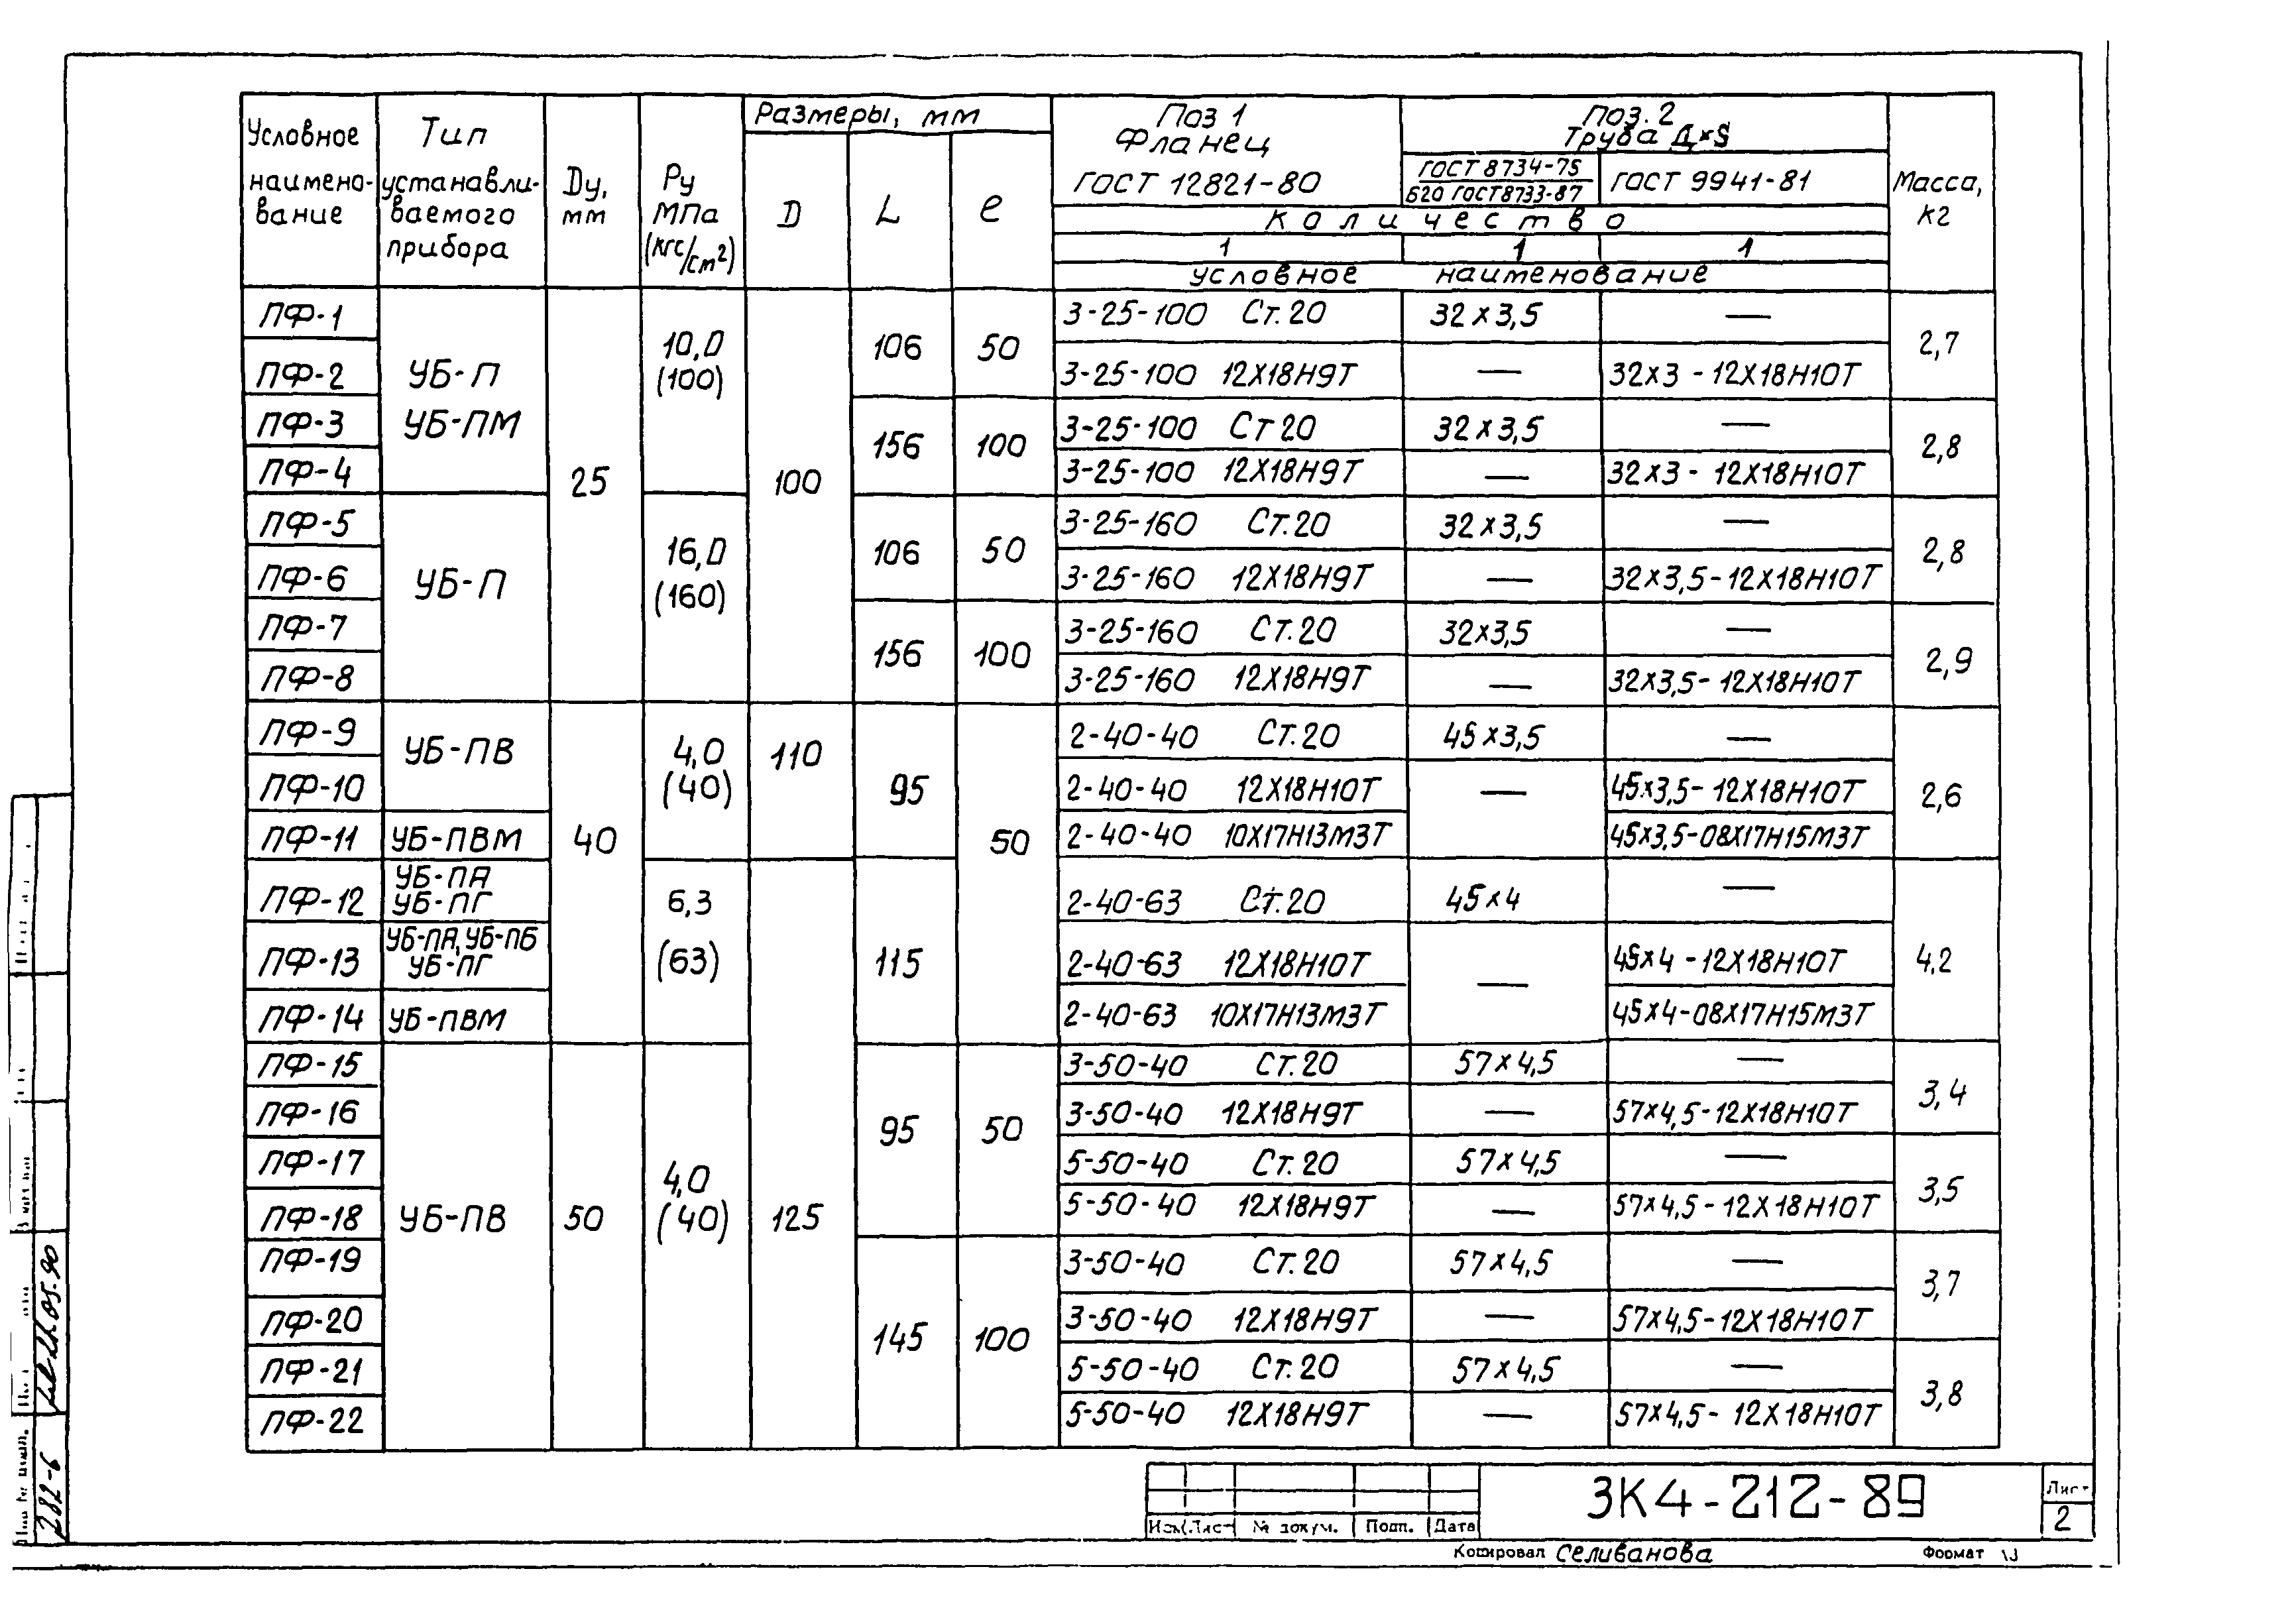 Условное наимено-вание
Тип устанавли-ваемого прибора
Dу, мм
Ру МПа (кгс/см²)
Размеры, мм
D
L
ℓ
Поз 1 Фланец ГОСТ 12821-80
Поз. 2 Труба Д×S
ГОСТ 8734-75
Б20 ГОСТ8733-87
ГОСТ 9941-81
Масса, кг
количество
1 1 1
условное наименование
ПФ-1 УБ-П УБ-ПМ 25 10,0 (100) 100 106 50 3-25-100 Ст.20 32×3,5 — 2,7
ПФ-2 3-25-100 12Х18Н9Т — 32×3 - 12Х18Н10Т
ПФ-3 156 100 3-25-100 Ст 20 32×3,5 — 2,8
ПФ-4 3-25-100 12Х18Н9Т — 32×3 - 12Х18Н10Т
ПФ-5 УБ-П 16,0 (160) 106 50 3-25-160 Ст.20 32×3,5 — 2,8
ПФ-6 3-25-160 12Х18Н9Т — 32×3,5-12Х18Н10Т
ПФ-7 156 100 3-25-160 Ст.20 32×3,5 — 2,9
ПФ-8 3-25-160 12Х18Н9Т — 32×3,5-12Х18Н10Т
ПФ-9 УБ-ПВ 40 4,0 (40) 110 95 50 2-40-40 Ст.20 45×3,5 — 2,6
ПФ-10 2-40-40 12Х18Н10Т — 45×3,5-12Х18Н10Т
ПФ-11 УБ-ПВМ 2-40-40 10Х17Н13М3Т 45×3,5-08Х17Н15М3Т
ПФ-12 УБ-ПА УБ-ПГ 6,3 (63) 125 115 2-40-63 Ст.20 45×4 — 4,2
ПФ-13 УБ-ПА, УБ-ПБ УБ-ПГ 2-40-63 12Х18Н10Т — 45×4 -12Х18Н10Т
ПФ-14 УБ-ПВМ 2-40-63 10Х17Н13М3Т 45×4-08Х17Н15М3Т
ПФ-15 УБ-ПВ 50 4,0 (40) 95 50 3-50-40 Ст.20 57×4,5 — 3,4
ПФ-16 3-50-40 12Х18Н9Т — 57×4,5-12Х18Н10Т
ПФ-17 5-50-40 Ст.20 57×4,5 — 3,5
ПФ-18 5-50-40 12Х18Н9Т — 57×4,5-12Х18Н10Т
ПФ-19 145 100 3-50-40 Ст.20 57×4,5 — 3,7
ПФ-20 3-50-40 12Х18Н9Т — 57×4,5-12Х18Н10Т
ПФ-21 5-50-40 Ст.20 57×4,5 — 3,8
ПФ-22 5-50-40 12Х18Н9Т — 57×4,5- 12Х18Н10Т
05.90
282-6
Изм. Лист № докум. Подп. Дата
ЗК4-212-89
Лист
2
Копировал Селиванова
Формат